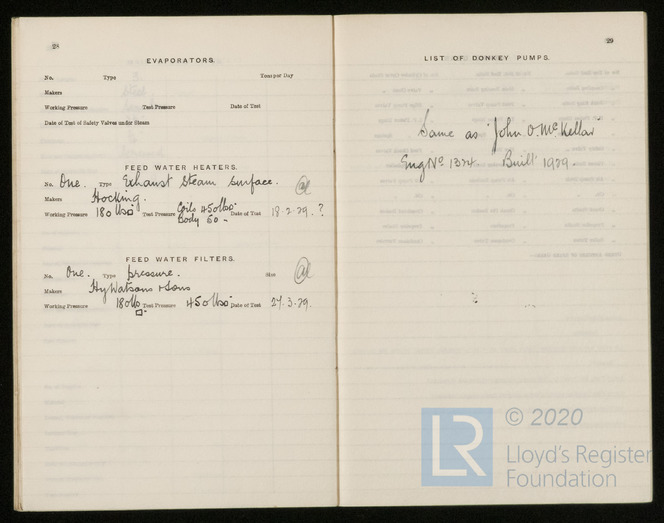 28
EVAPORATORS.
No. Type Tons per Day
Makers
Working Pressure Test Pressure Date of Test
Date of Test of Safety Valves under Steam
FEED WATER HEATERS.
No. One. Type Exhaust Steam surface.
Makers Hocking.
Working Pressure 180 lbs Test Pressure Coils 450 lbs. Date of Test 18.2.29. ?
Body 50 -
FEED WATER FILTERS.
No. One. Type pressure. Size
Makers Hy Watsons & Sons
Working Pressure 180 lbs Test Pressure 450 lbs. Date of Test 27.3.29.
29
LIST OF DONKEY PUMPS.
Same as "John O. McKellar"
Eng No. 1324. Built 1929.
LR
© 2020
Lloyd's Register
Foundation